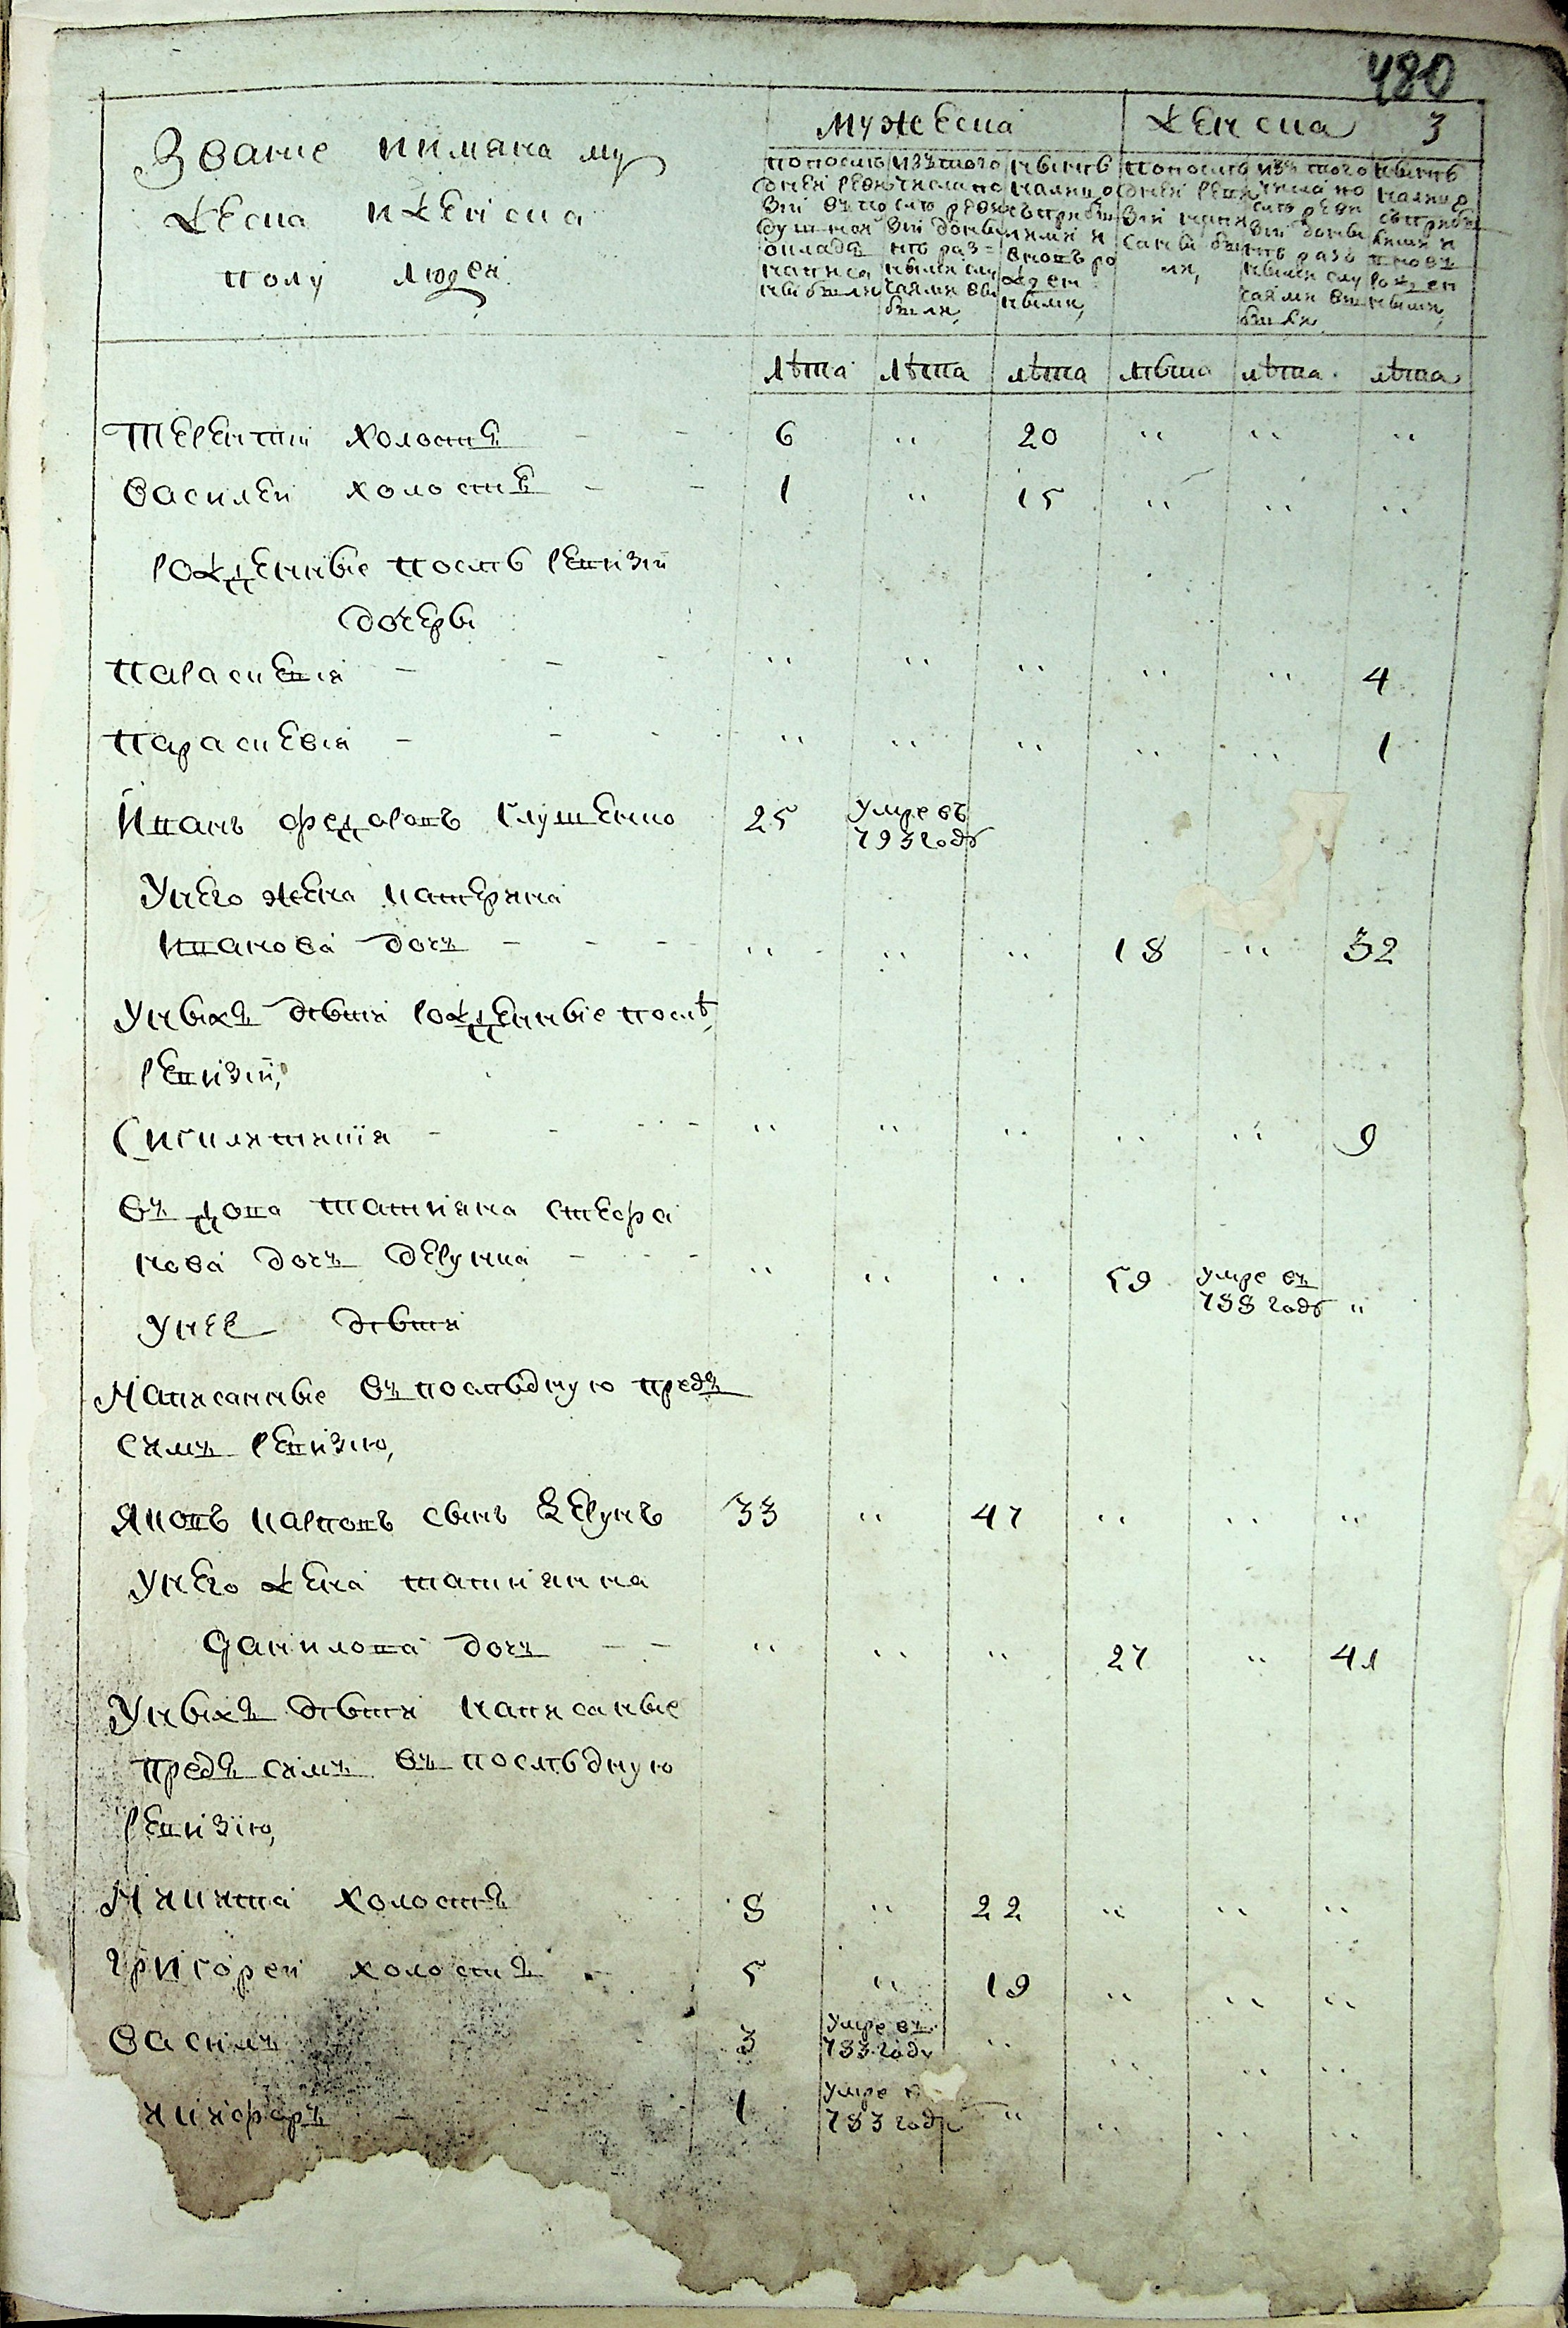 480
3
Званіе иимяна му
жеска иженска
полу людей
мужеска
женска
попослѣ
дней реви
зіи въ по
душной
окладъ
написа
ны были
изътого
числа по
слѣ реви
зіи добы
нѣ раз=
ными слу
чаями вы
были,
нынѣ
налицо
съприбы
лыми и
вновъ ро
жден
ными,
попослѣ
дней реви
зіи напи
саны бы
ли,
изътого
числа по
слѣ реви
зіи добы
нѣ разъ
ными слу
чаями вы
были,
нынѣ
налицо
съприбы
лыми и
вновъ
рожден
ными,
лѣта лѣта лѣта лѣта лѣта лѣта
Терентій холостъ - - 6 " 20 " " "
василей холостъ - - 1 " 15 " " "
рожденные послѣ ревизіи
дочеры
параскевія - - - " " " " " 4
параскевія - - - " " " " " 1
Иванъ федоровъ Глушенко 25 умре въ
793 годѣ
Унего жена катеряна
иванова дочъ - - - " " " 18 " 32
Уныхъ дѣти рожденные послѣ,
ревизіи,
Сиклятикія - - - " " " " " 9
въ дова татияна стефа
нова дочъ дерунка - - - " " " 59 умре въ
788 годѣ "
унее дѣти
Написанные въ послѣдную предъ
симъ ревизію,
яковъ карповъ сынъ Дерунъ 33 " 47 " " "
Унего жена татиянна
данилова дочъ - - " " " 27 " 41
Уныхъ дѣти написаные
предъ симъ въ послѣдную
ревизію,
Микита холостъ 8 " 22 " " "
григорей холостъ - 5 " 19 " " "
василъ 3 умре въ
783 году " " " "
никифоръ - - 1 умре
783 году " " " "